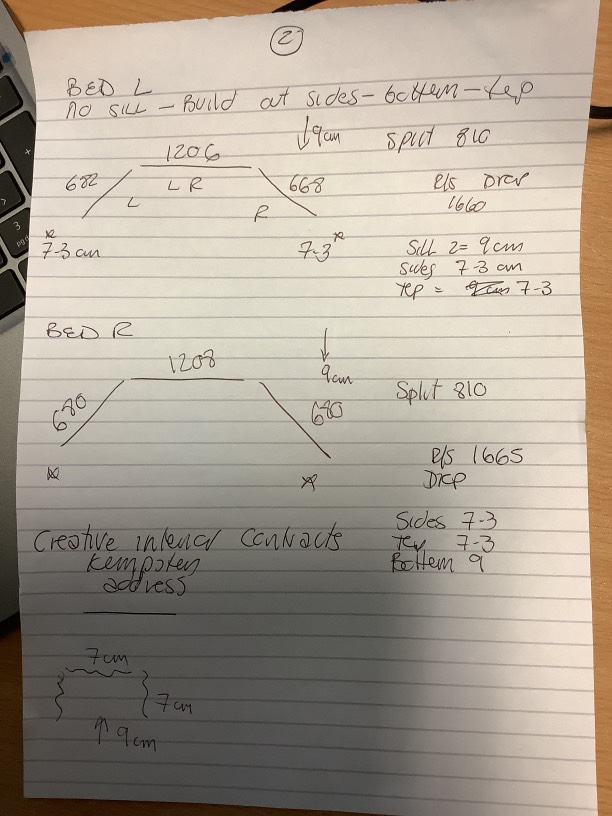 2
BED L
NO SILL - BUILD out sides - bottom - top
↓ 9cm
1206
Split 810
682
L R
668
L
R
R/s Drop
1660
7-3 cm
7-3
Sill 2 = 9cm
Sides 7-3 cm
Top = 7-3
BED R
1208
↓
9cm
Split 810
680
680
R/s 1665
Drop
Sides 7-3
Top 7-3
Bottom 9
Creative interior Contracts
address
7cm
7cm
↑ 9cm